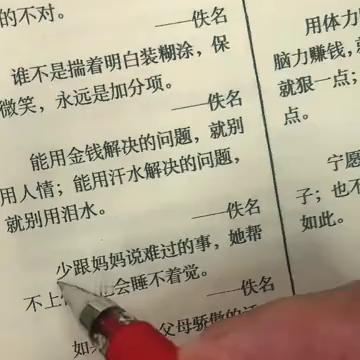 的不对。
——佚名
谁不是揣着明白装糊涂，保
微笑，永远是加分项。
——佚名
能用金钱解决的问题，就别
用人情；能用汗水解决的问题，
就别用泪水。
——佚名
少跟妈妈说难过的事，她帮
不上 会睡不着觉。
——佚名
如 父母骄傲的
用体力
脑力赚钱，
就狠一点；
点。
宁愿
子；也不
如此。